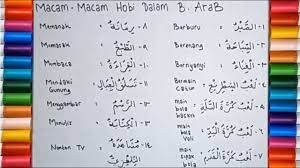 Macam-Macam Hobi Dalam B. Arab
Berburu ١- القَنْصُ
٢- السِّبَاحَةُ
Bernyanyi ٣- الغِنَاءُ
Bermain catur ٤- لَعْبُ الشِّطْرَنْجِ
main bola basket ٥- لَعْبُ كُرَةِ السَّلَّةِ
main bola voli ٦- لَعْبُ كُرَةِ
main sepak bola ٧- لَعْبُ كُرَةِ
٨- رِمَايَةٌ
Memasak ٩- الطَّبْخُ
Membaca ١٠- القِرَاءَةُ
Mendaki
Gunung ١١- تَسَلُّقُ الجِبَالِ
Menggambar ١٢- الرَّسْمُ
Menulis ١٣- الكِتَابَةُ
Nonton TV ١٤- مُشَاهَدَةُ